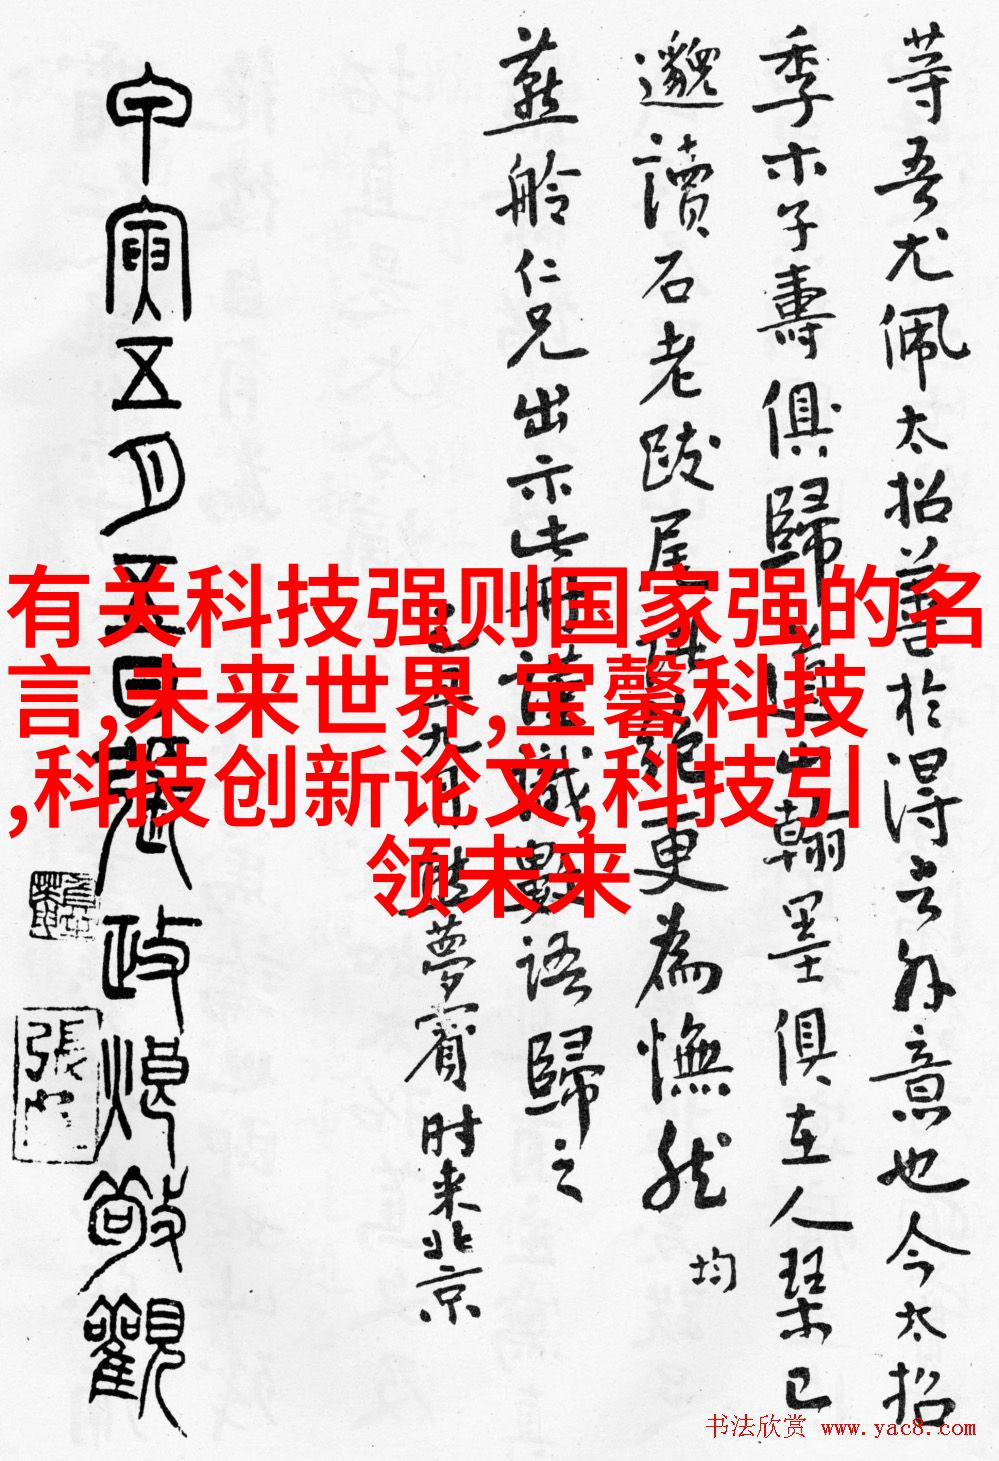 等吾尤佩太招蓋於得言外意也今太招
季木子壽俱歸道山翰墨俱在人琴已
邈讀石老跋尾
更為憮然 均
燕舲仁兄出示此冊謹識數語歸之
九月 夢賓时来北京
甲寅五月五日張政烺敬觀
張
有关科技强则国家强的名
言,未来世界,宝馨科技
,科技创新论文,科技引
领未来
书法欣赏 www.yac8.com